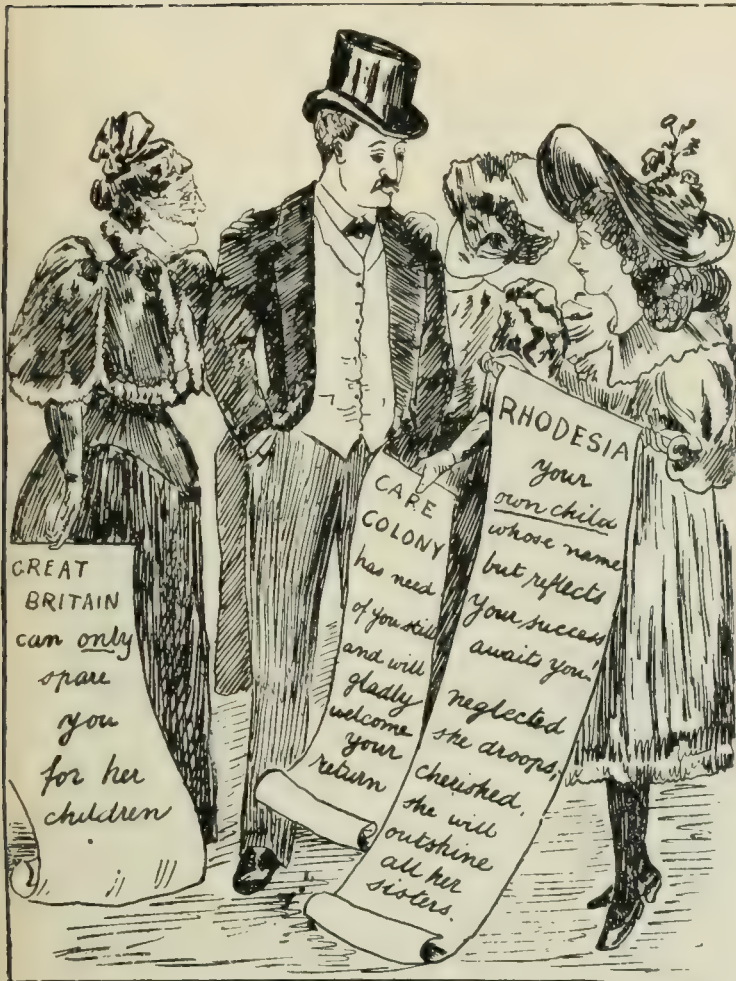 GREAT
BRITAIN
can only
spare
you
for her
children
CARE
COLONY
has need
of you still
and will
gladly
welcome
your
return
RHODESIA
your
own child
whose name
but reflects
your success
awaits you!
neglected
she droops,
cherished,
she will
outshine
all her
sisters.